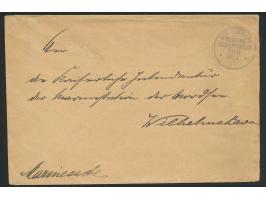 An
die Kaiserliche Intendantur
der Marinestation der Nordsee
Wilhelmshaven
Marinesache